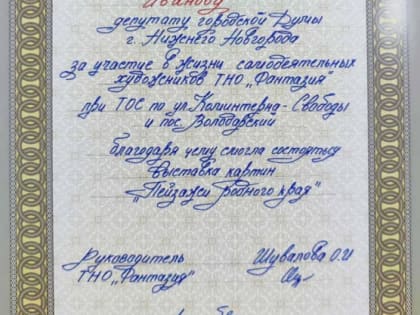 Иванову
депутату городской Думы
г. Нижнего Новгорода
за участие в жизни самодеятельных
художников ТНО „Фантазия"
при ТОС по ул. Коминтерна - Свободы
и пос. Володарский
благодаря чему смогла состояться
выставка картин
„Пейзажи родного края"
Руководитель Шувалова О.И
ТНО „Фантазия"